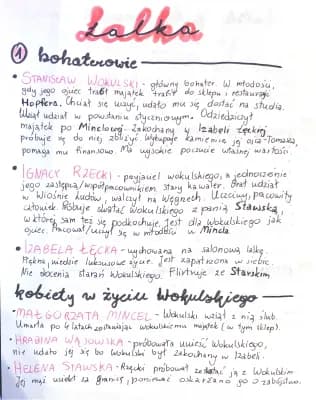 Lalka
① bohaterowie
• STANISŁAW WOKULSKI - główny bohater. W młodości,
gdy jego ojciec trafił majątek trafił do sklepu i restauracji
Hopfera. Chciał się uczyć, udało mu się dostać na studia.
Wziął udział w powstaniu styczniowym. Odziedziczył
majątek po Minclowej. Zakochany w Izabeli Łęckiej
próbuje się do niej zbliżyć. Wykupuje kamienicę jej ojca - Tomasza,
pomaga mu finansowo. Ma wysokie poczucie własnej wartości.
• IGNACY RZECKI - przyjaciel Wokulskiego, a jednocześnie
jego zastępca/współpracownikiem. Stary kawaler. Brał udział
w Wiośnie Ludów, walczył na Węgrzech. Uczciwy, pracowity
człowiek. Próbuje zeswatać Wokulskiego z panią Stawską,
w której sam też się podkochuje. Jest dla Wokulskiego jak
ojciec. Pracował/uczył się w młodości u Mincla
• IZABELA ŁĘCKA - wychowana na salonową lalkę.
Piękna, wiedzie luksusowe życie. Jest zapatrzona w siebie.
Nie docenia starań Wokulskiego. Flirtuje ze Starskim
kobiety w życiu Wokulskiego
- MAŁGORZATA MINCEL - Wokulski wziął z nią ślub.
Umarła po 4 latach zostawiając Wokulskiemu majątek (w tym sklep).
- HRABINA WĄSOWSKA - próbowała uwieść Wokulskiego,
nie udało jej się bo Wokulski był zakochany w Izabeli.
- HELENA STAWSKA - Rzecki próbował zeswatać ją z Wokulskim
Jej mąż uciekł za granicę, ponieważ oskarżano go o zabójstwo.